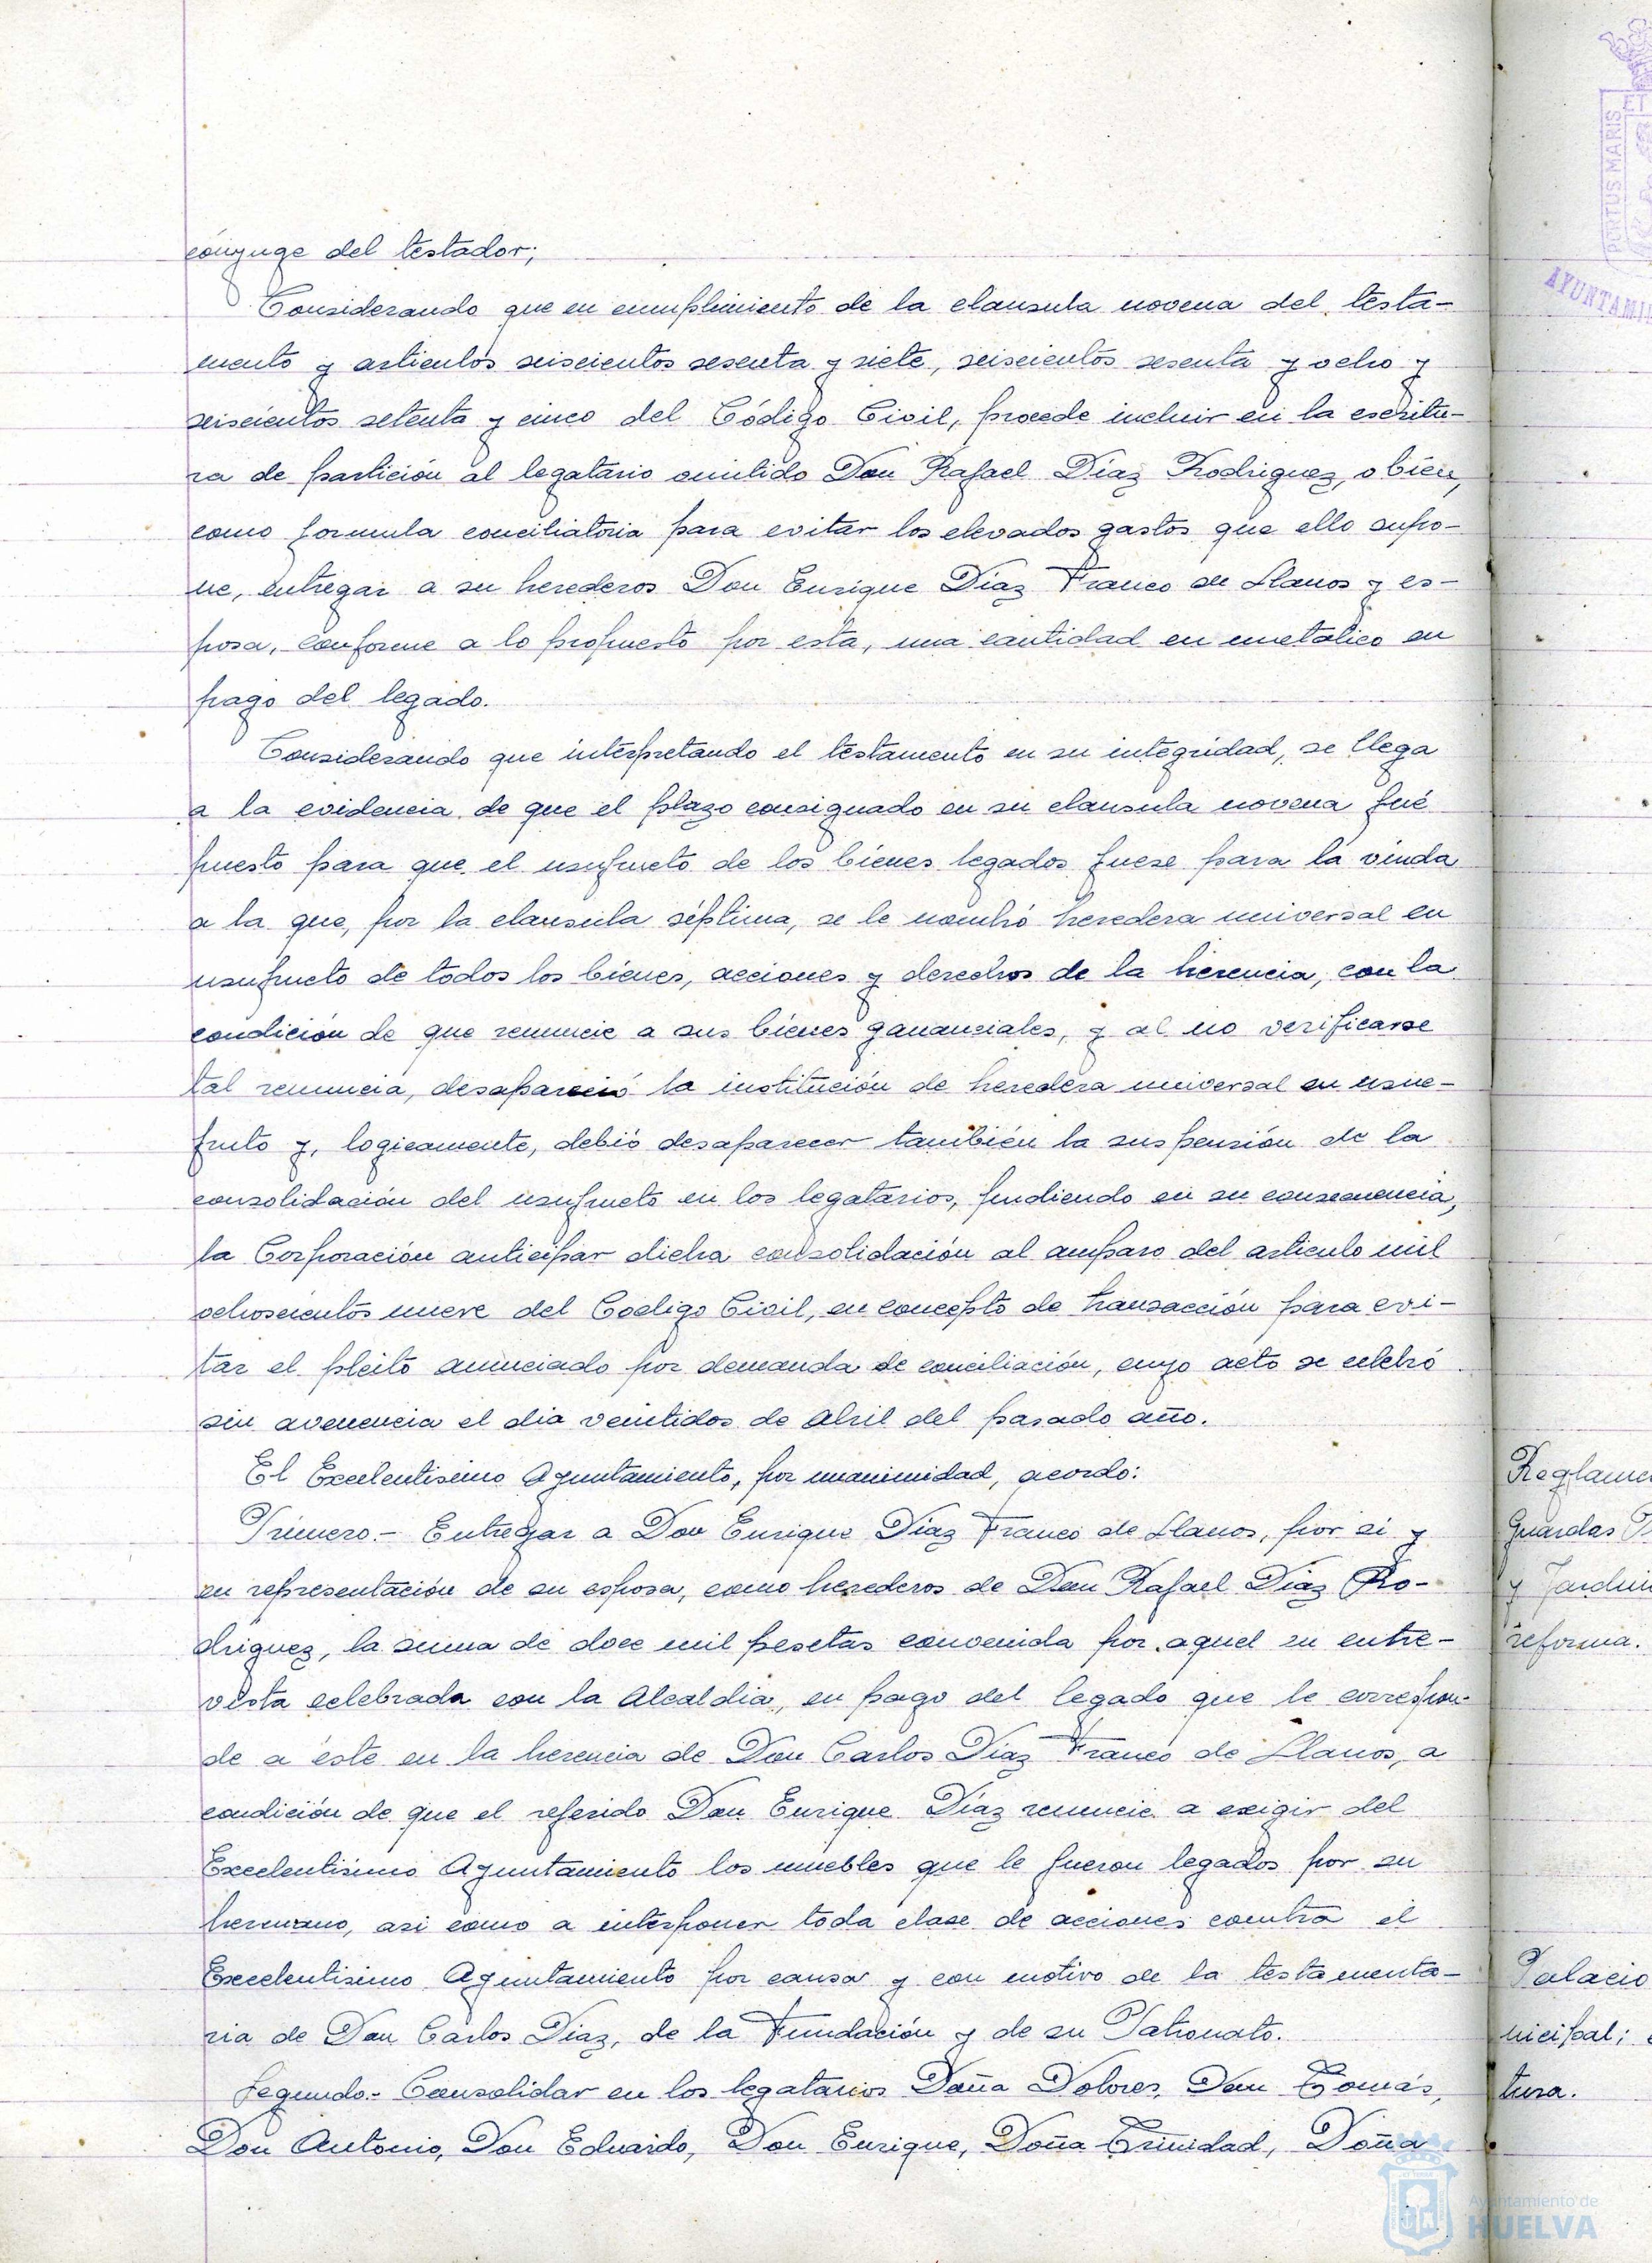 cónyuge del testador;
Considerando que en cumplimiento de la clausula novena del testa-
mento y articulos seiscientos sesenta y siete, seiscientos sesenta y ocho y
seiscientos setenta y cinco del Código Civil, procede incluir en la escritu-
ra de partición al legatario omitido Don Rafael Díaz Rodriguez, o bien,
como formula conciliatoria para evitar los elevados gastos que ello supo-
ne, entregar a su herederos Don Enrique Díaz Franco de Llanos y es-
posa, conforme a lo propuesto por esta, una cantidad en metalico en
pago del legado.
Considerando que interpretando el testamento en su integridad, se llega
a la evidencia de que el plazo consignado en su clausula novena fué
puesto para que el usufructo de los bienes legados fuese para la viuda
a la que, por la clausula séptima, se le nombró heredera universal en
usufructo de todos los bienes, acciones y derechos de la herencia, con la
condición de que renuncie a sus bienes gananciales, y al no verificarse
tal renuncia, desapareció la institución de heredera universal en usu-
fruto y, logicamente, debió desaparecer también la suspensión de la
consolidación del usufructo en los legatarios, pudiendo en su consecuencia,
la Corporación anticipar dicha consolidación al amparo del articulo mil
ochoscientos nueve del Codigo Civil, en concepto de transacción para evi-
tar el pleito anunciado por demanda de conciliación, cuyo acto se celebró
sin avenencia el dia veintidos de Abril del pasado año.
El Excelentisimo Ayuntamiento, por unanimidad, acordo:
Primero.- Entregar a Don Enrique Díaz Franco de Llanos, por si y
en representación de su esposa, como herederos de Don Rafael Díaz Ro-
driguez, la suma de doce mil pesetas convenida por aquel en entre-
vista celebrada con la Alcaldia, en pago del legado que le correspon-
de a éste en la herencia de Don Carlos Díaz Franco de Llanos, a
condición de que el referido Don Enrique Díaz renuncie a exigir del
Excelentisimo Ayuntamiento los muebles que le fueron legados por su
hermano, asi como a interponer toda clase de acciones contra el
Excelentisimo Ayuntamiento por causa y con motivo de la testamenta-
ria de Don Carlos Diaz, de la Fundación y de su Patronato.
Segundo.- Consolidar en los legatarios Doña Dolores, Don Tomás,
Don Antonio, Don Eduardo, Don Enrique, Doña Trinidad, Doña
PORTUS MARIS
ET
AYUNTAMI
Reglamen
Guardas P
y Jardin
reforma.
Palacio
nicipal;
tura.
Ayuntamiento de
HUELVA